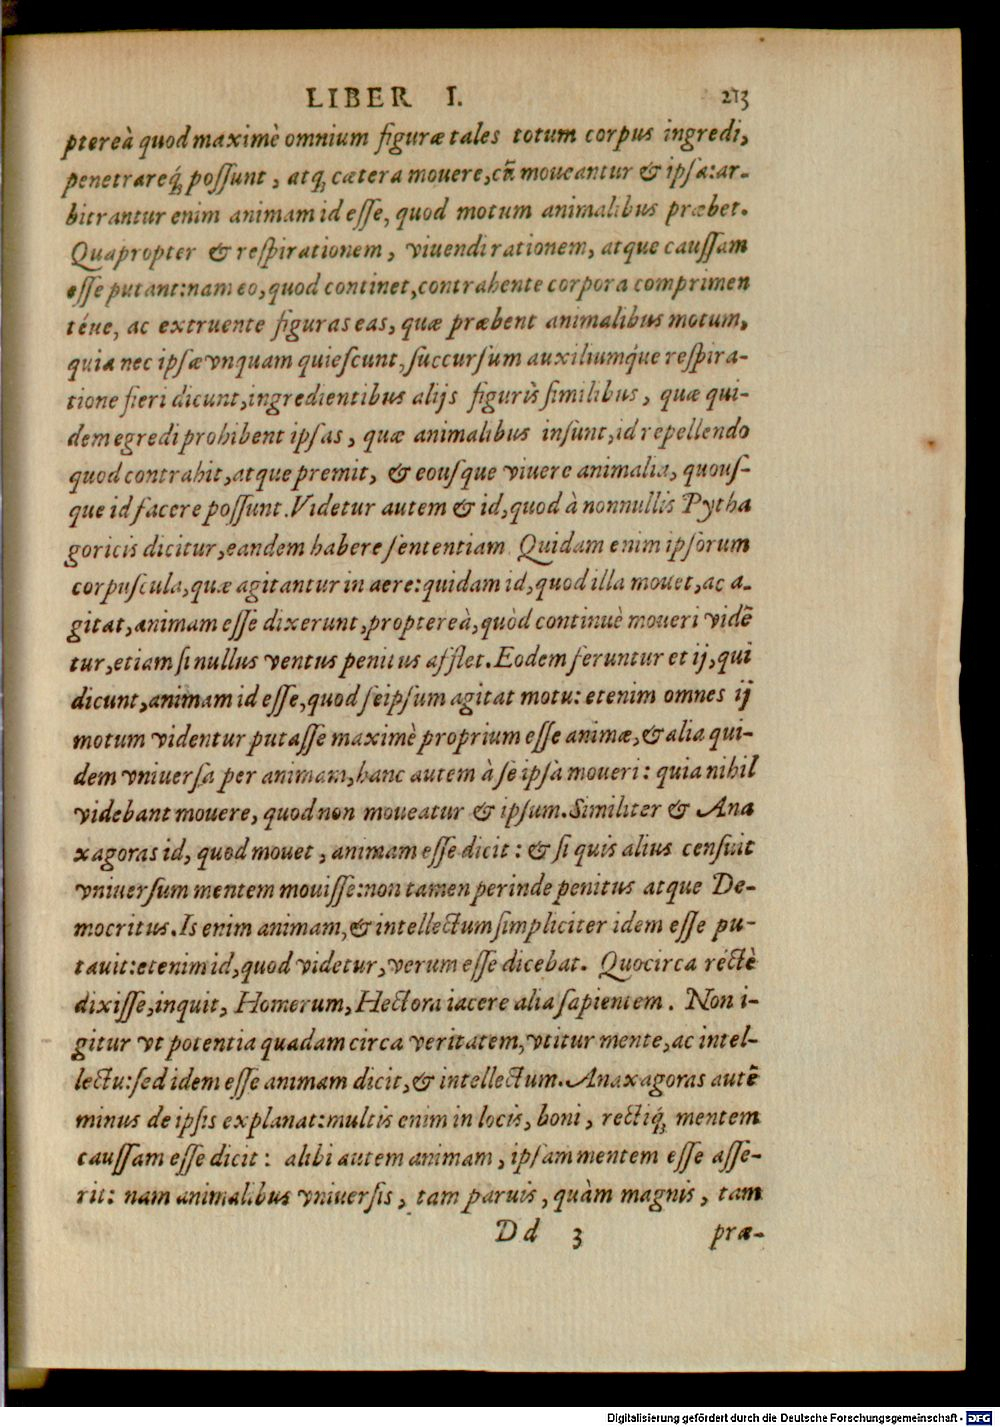 LIBER I. 213
ptereà quod maximè omnium figuræ tales totum corpus ingredi,
penetrareq́ꝫ possunt, atqꝫ cætera mouere, cũ moueantur & ipsa: ar-
bitrantur enim animam id esse, quod motum animalibus præbet.
Quapropter & respirationem, viuendi rationem, atque caussam
esse putant: nam eo, quod continet, contrahente corpora comprimen
téue, ac extruente figuras eas, quæ præbent animalibus motum,
quia nec ipsæ vnquam quiescunt, succursum auxiliumq́ue respira-
tione fieri dicunt, ingredientibus alijs figuris similibus, quæ qui-
dem egredi prohibent ipsas, quæ animalibus insunt, id repellendo
quod contrahit, atque premit, & eousque viuere animalia, quous-
que id facere possunt. Videtur autem & id, quod à nonnullis Pytha
goricis dicitur, eandem habere sententiam. Quidam enim ipsorum
corpuscula, quæ agitantur in aere: quidam id, quod illa mouet, ac a-
gitat, animam esse dixerunt, proptereà, quòd continuè moueri vidẽ
tur, etiam si nullus ventus penitus afflet. Eodem feruntur et ij, qui
dicunt, animam id esse, quod seipsum agitat motu: etenim omnes ij
motum videntur putasse maximè proprium esse animæ, & alia qui-
dem vniuersa per animam, hanc autem à se ipsà moueri: quia nihil
videbant mouere, quod non moueatur & ipsum. Similiter & Ana
xagoras id, quod mouet, animam esse dicit: & si quis alius censuit
vniuersum mentem mouisse: non tamen perinde penitus atque De-
mocritus. Is enim animam, & intellectum simpliciter idem esse pu-
tauit: etenim id, quod videtur, verum esse dicebat. Quocirca réctè
dixisse, inquit, Homerum, Hectora iacere alia sapientem. Non i-
gitur vt potentia quadam circa veritatem, vtitur mente, ac intel-
lectu: sed idem esse animam dicit, & intellectum. Anaxagoras autẽ
minus de ipsis explanat: multis enim in locis, boni, rectiq́ꝫ mentem
caussam esse dicit: alibi autem animam, ipsam mentem esse asse-
rit: nam animalibus vniuersis, tam paruis, quàm magnis, tam
Dd 3 præ-
Digitalisierung gefördert durch die Deutsche Forschungsgemeinschaft - DFG